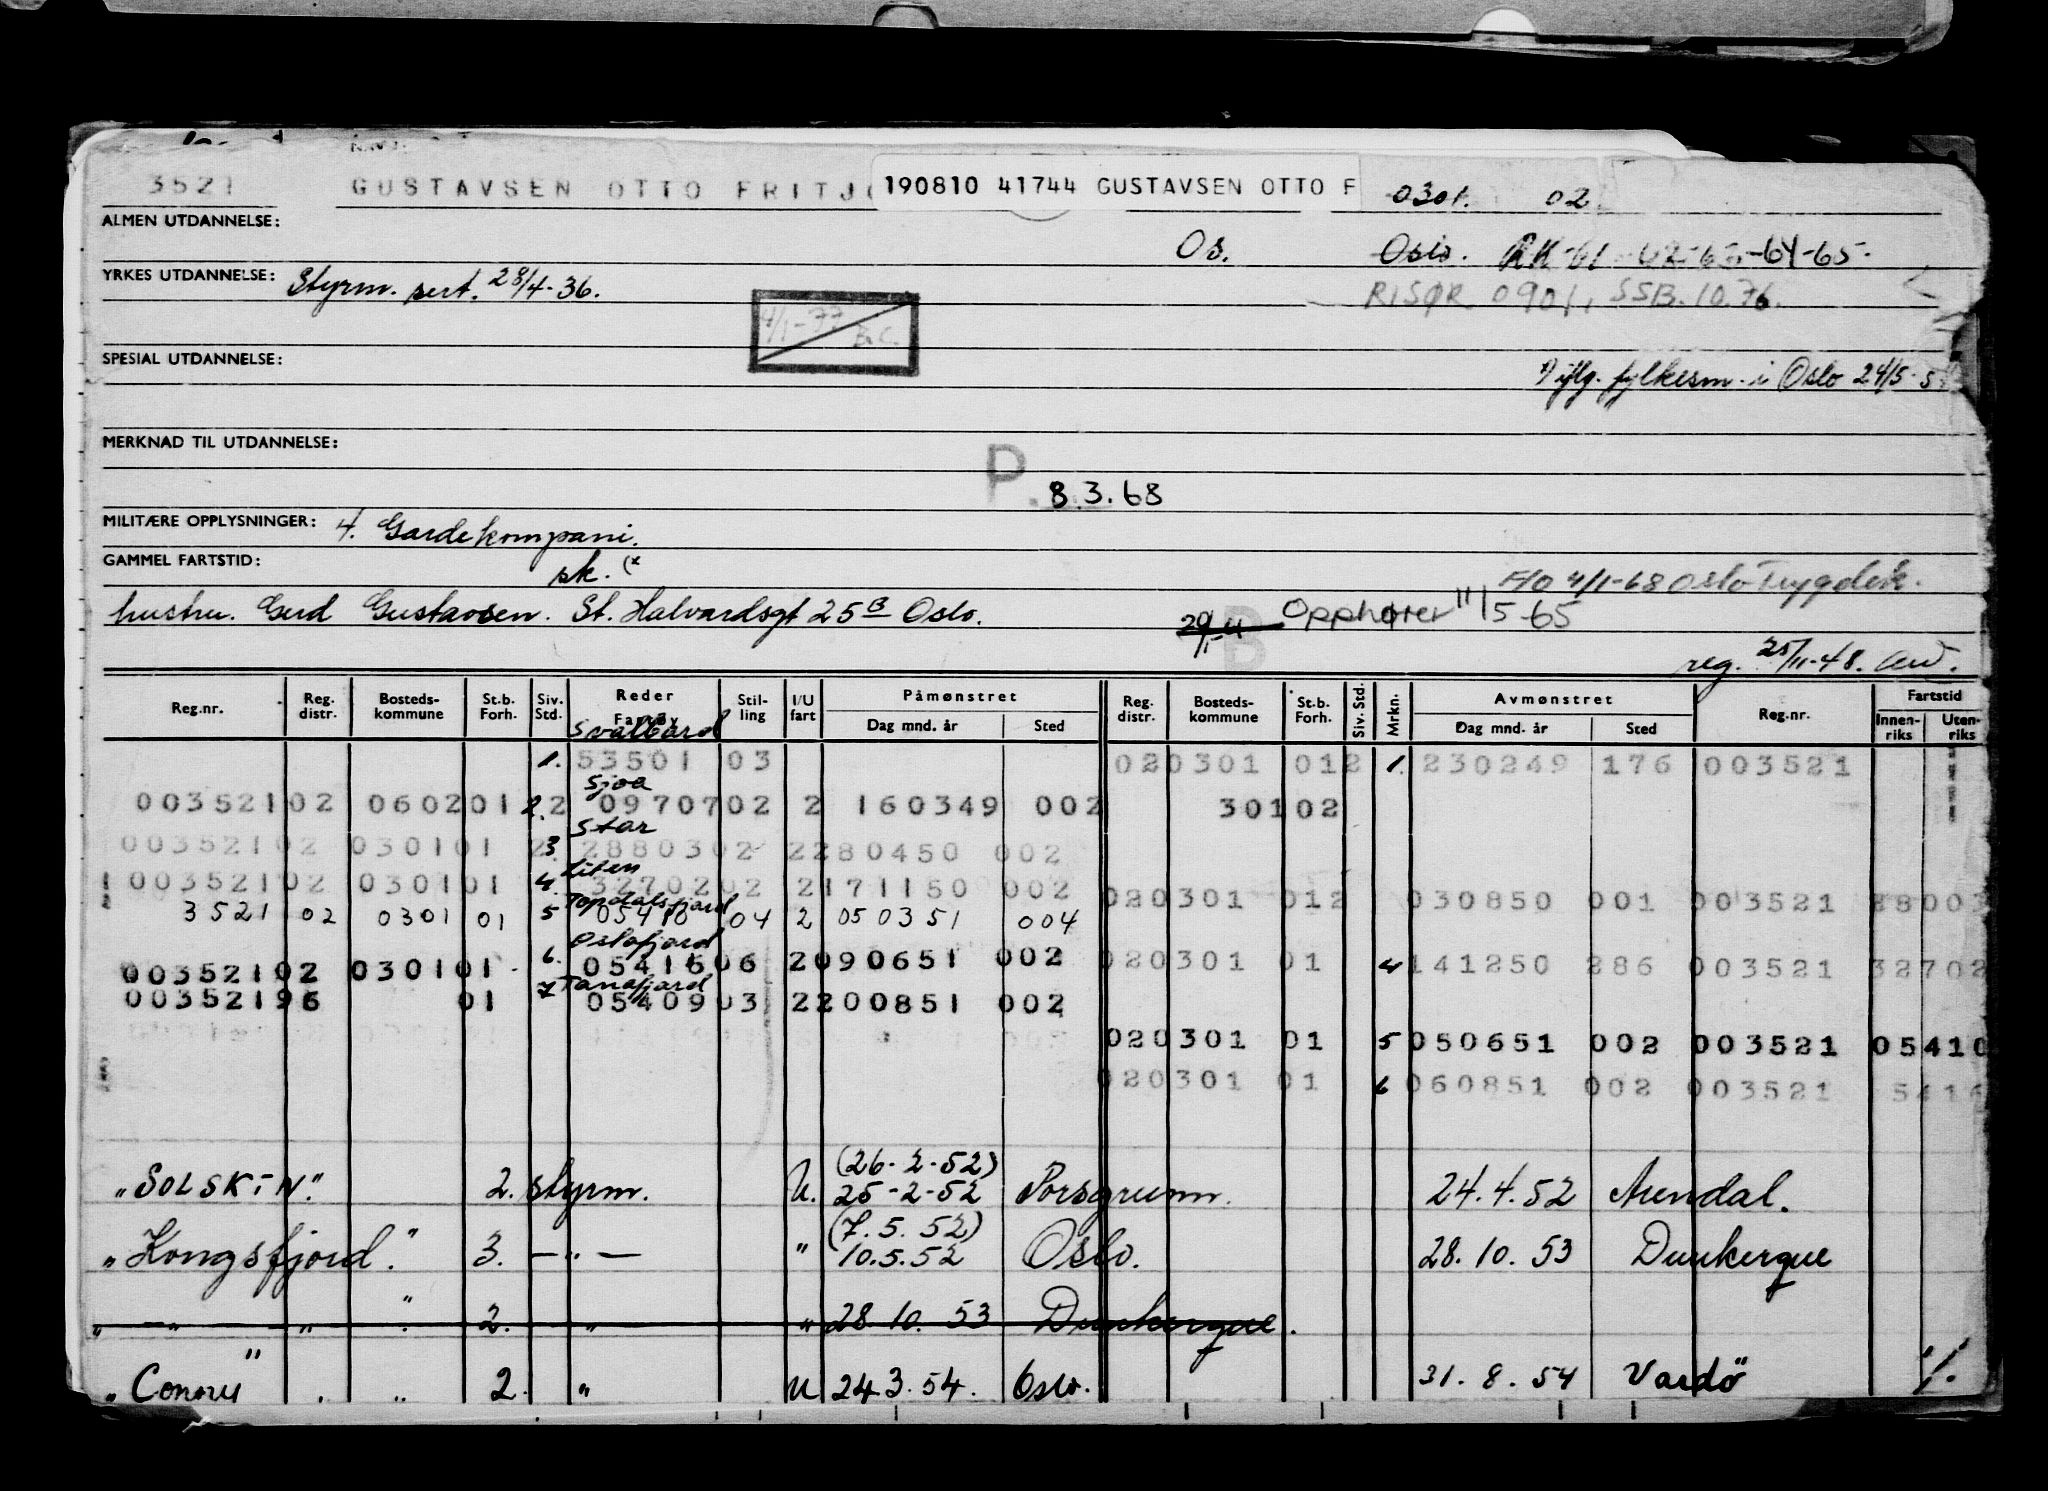 3521 GUSTAVSEN OTTO FRITJ 190810 41744 GUSTAVSEN OTTO F 0301. 02
ALMEN UTDANNELSE:
Os. Oslo. RK-61-62-63-64-65-
YRKES UTDANNELSE: Styrm. sert. 28/4-36.
RISØR 0901, SSB.10.76.
4/1-77 B.C.
SPESIAL UTDANNELSE:
iflg. fylkesm. i Oslo 24/5-5
MERKNAD TIL UTDANNELSE:
P. 8.3.68
MILITÆRE OPPLYSNINGER: 4. Gardekompani.
GAMMEL FARTSTID: sk. (x
F/O 4/1-68 Oslo Trygdek.
hustru. Gerd Gustavsen. St. Halvardsgt 25B Oslo.
B Opphører 11/5-65
reg. 25/11-48.
Reg.nr. Reg. distr. Bosteds-kommune St.b. Forh. Siv. Std. Reder Fartøy Stil-ling I/U fart Påmønstret Dag mnd. år Sted Reg. distr. Bosteds-kommune St.b. Forh. Siv. Std. Mrkn. Avmønstret Dag mnd. år Sted Reg.nr. Fartstid Innen-riks Uten-riks
Svalbard
1. 53501 03 020301 012 1. 230249 176 003521
Sjoa
00352102 060201 2. 2 0970702 2 160349 002 30102
Star
00352102 030101 2 3. 2880302 2280450 002
Liten
00352102 030101 4. 3270202 2171150 002 020301 012 030850 001 003521 28003
Topdalsfjord
3521 02 0301 01 5 05410 04 2 050351 004
Oslofjord
00352102 030101 6. 0541606 2090651 002 020301 01 4 141250 286 003521 32702
Tanafjord
00352196 01 7 0540903 2200851 002
020301 01 5 050651 002 003521 05410
020301 01 6 060851 002 003521 5416
(26-2-52)
"SOLSKIN". 2. styrm. U. 25-2-52 Porsgrunn. 24.4.52 Arendal.
(7.5.52)
"Kongsfjord". 3. —"— " 10.5.52 Oslo. 28.10.53 Dunkerque
" —"— " " 2. " " 28.10.53 Dunkerque.
2. " U 24.3.54. Oslo. 31.8.54 Vardö